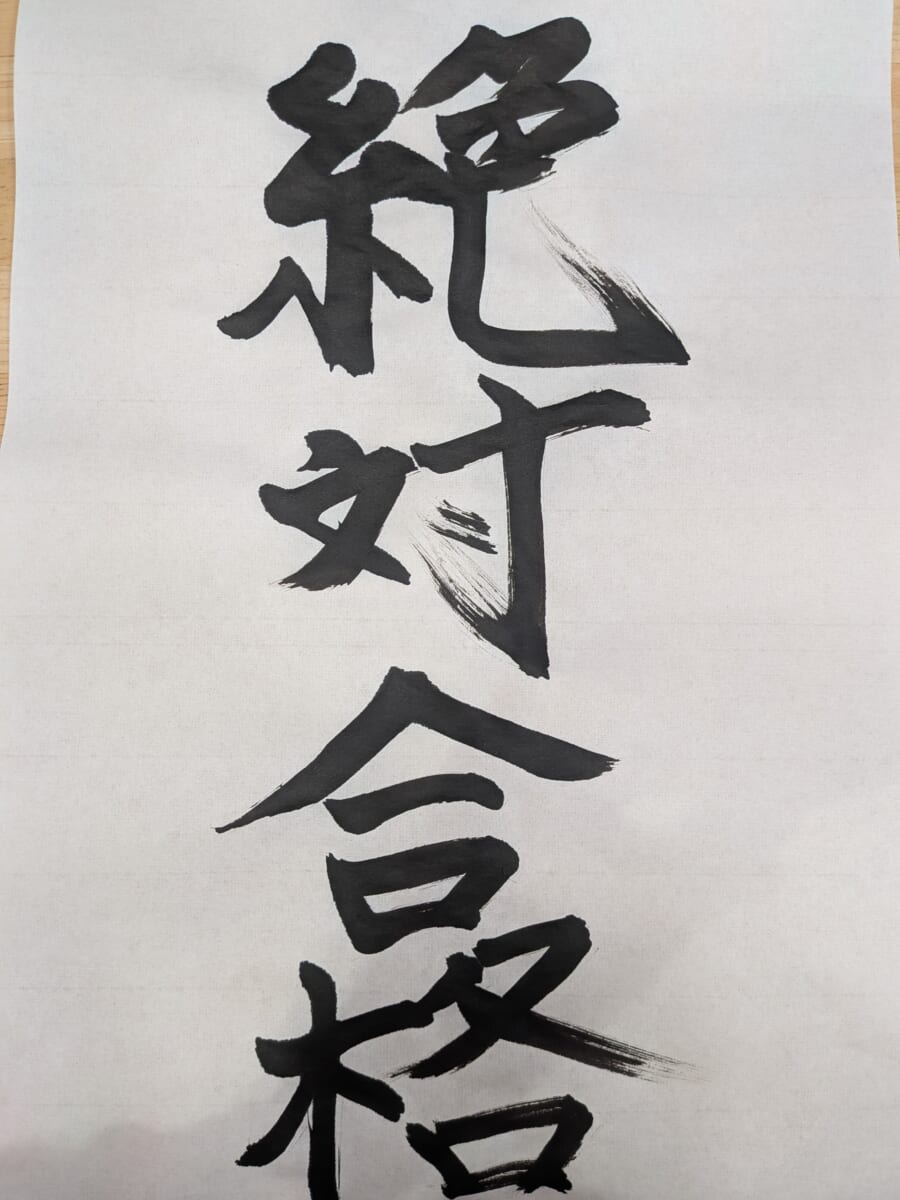 絶対合格